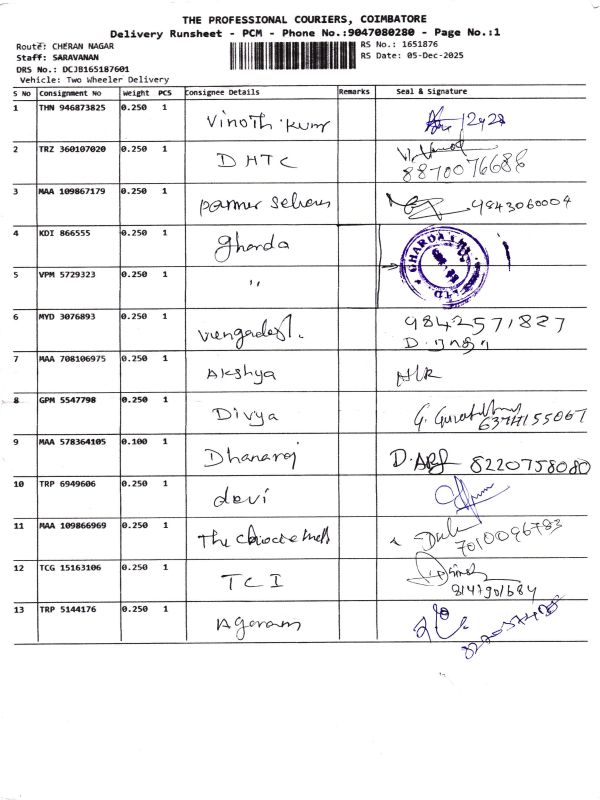 THE PROFESSIONAL COURIERS, COIMBATORE
Delivery Runsheet - PCM - Phone No.:9047080280 - Page No.:1
Route: CHERAN NAGAR
RS No.: 1651876
Staff: SARAVANAN
RS Date: 05-Dec-2025
DRS No.: DCJB165187601
Vehicle: Two Wheeler Delivery
S No Consignment No Weight PCS Consignee Details Remarks Seal & Signature
1 THN 946873825 0.250 1 Vinoth kumr
2 TRZ 360107020 0.250 1 DHTC 8870076688
3 MAA 109867179 0.250 1 9843060004
4 KDI 866555 0.250 1 Gharda GHARDA LTD
5 VPM 5729323 0.250 1 "
6 MYD 3076893 0.250 1 9842571827
7 MAA 708106975 0.250 1 Akshya
8 GPM 5547798 0.250 1 Divya
9 MAA 578364105 0.100 1 Dhanaraj 8220758080
10 TRP 6949606 0.250 1 devi
11 MAA 109866969 0.250 1 The 7010096783
12 TCG 15163106 0.250 1 TCI 8147901684
13 TRP 5144176 0.250 1 Agaram